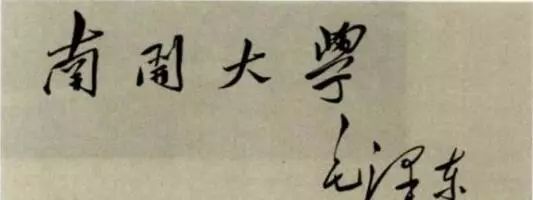 南開大學
毛泽东